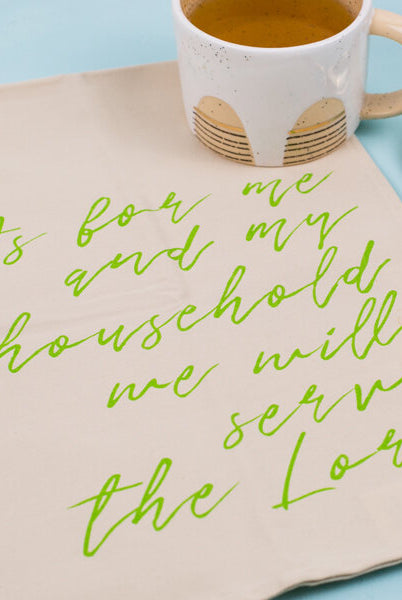 As for me
and my
household
we will
serve
the Lord